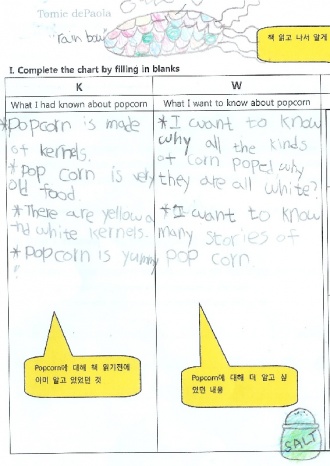 Tomie dePaola
"rain bow"
책 읽고 나서 알게
I. Complete the chart by filling in blanks
K
What I had known about popcorn
*Popcorn is made
of kernels.
*pop corn is very
old food.
*There are yellow a
nd white kernels.
*Popcorn is yummy
!
W
What I want to know about popcorn
*I want to know
why all the kinds
of corn poped why
they are all white?
*I want to know
many stories of
pop corn.
Popcorn에 대해 책 읽기전에
이미 알고 있었던 것
Popcorn에 대해 더 알고 싶
었던 내용
SALT